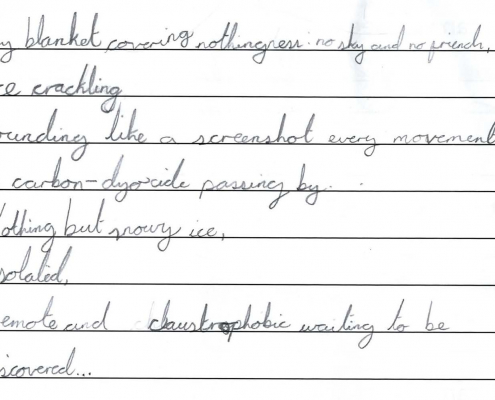 y blanket covering nothingness: no sky and no friends,
ce crackling
ounding like a screenshot every movement
carbon-dyoxcide passing by.
Nothing but snowy ice,
solated,
emote and claustrophobic waiting to be
iscovered...